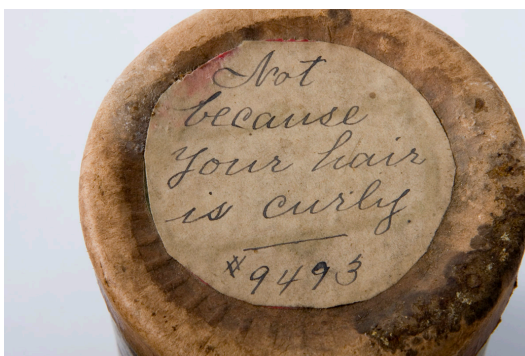 Not
because
Your hair
is curly.
#9493